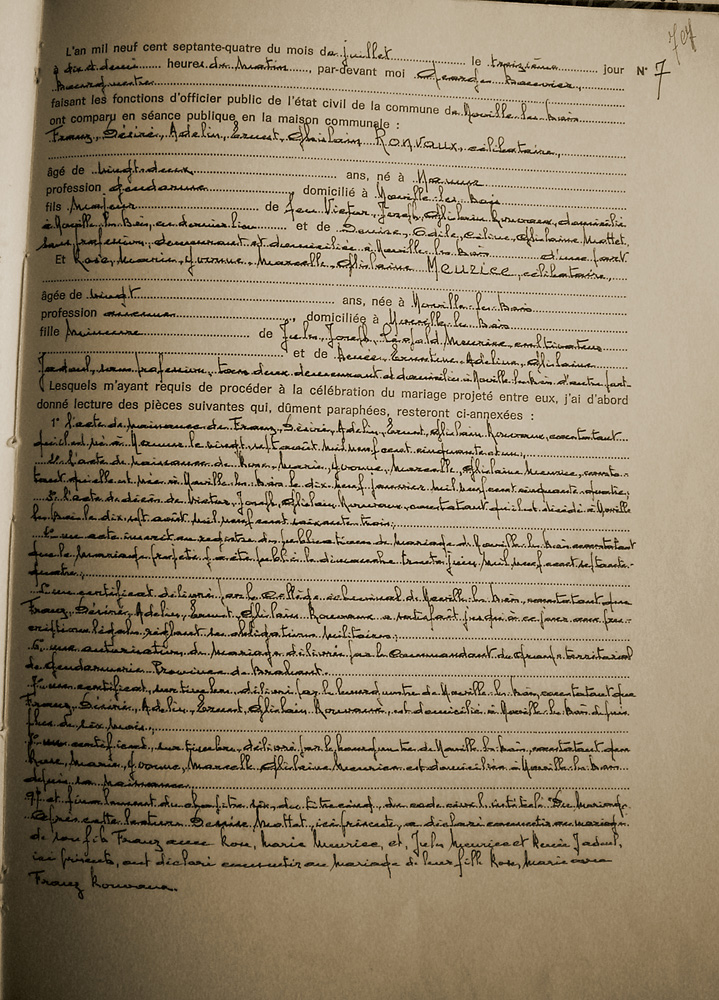 L'an mil neuf cent septante-quatre du mois de juillet le treizième jour N° 7
à dix et demi heures du Matin, par-devant moi Georges
Bourgmestre
faisant les fonctions d'officier public de l'état civil de la commune de Noville-les-Bois
ont comparu en séance publique en la maison communale :
Franz, Désiré, Adelin, Ernest, Ghislain RONVAUX, célibataire,
âgé de vingt-deux ans, né à Namur
profession gendarme domicilié à Noville-les-Bois
fils Majeur de feu Victor, Joseph, Ghislain Ronvaux, domicilié
à Noville-les-Bois, en dernier lieu et de Denise, Odile, Céline, Ghislaine Mottet,
sans profession, demeurant et domiciliée à Noville-les-Bois d'une part
Et Rose, Marie, Yvonne, Marcelle, Ghislaine MEURICE, célibataire,
âgée de vingt ans, née à Noville-les-Bois
profession domiciliée à Noville-les-Bois
fille Mineure de Jules, Joseph, Léopold Meurice, cultivateur
et de Renée, Ernestine, Adeline, Ghislaine
Jadoul, sans profession, tous deux demeurant et domiciliés à Noville-les-Bois d'autre part
Lesquels m'ayant requis de procéder à la célébration du mariage projeté entre eux, j'ai d'abord
donné lecture des pièces suivantes qui, dûment paraphées, resteront ci-annexées :
1° l'acte de naissance de Franz, Désiré, Adelin, Ernest, Ghislain Ronvaux, constatant
qu'il est né à Namur le vingt-sept août mil neuf cent cinquante et un;
2° l'acte de naissance de Rose, Marie, Yvonne, Marcelle, Ghislaine Meurice, consta-
tant qu'elle est née à Noville-les-Bois le dix-neuf janvier mil neuf cent cinquante-quatre;
3° l'acte de décès de Victor, Joseph, Ghislain Ronvaux, constatant qu'il est décédé à Noville
les-Bois le dix-sept août mil neuf cent soixante-trois;
4° un acte inscrit au registre de publications de mariage de Noville-les-Bois constatant
que le mariage projeté a été publié le dimanche trente juin mil neuf cent septante-
quatre;
5° un certificat délivré par le Collège échevinal de Noville-les-Bois, constatant que
Franz, Désiré, Adelin, Ernest, Ghislain Ronvaux a satisfait jusqu'à ce jour aux pres-
criptions légales réglant les obligations militaires;
6° une autorisation de mariage délivrée par le Commandant du Groupe territorial
de Gendarmerie Province de Brabant.
7° un certificat, sur timbre, délivré par le bourgmestre de Noville-les-Bois, constatant que
Franz, Désiré, Adelin, Ernest, Ghislain Ronvaux, est domicilié à Noville-les-Bois depuis
plus de six mois;
8° un certificat, sur timbre, délivré par le bourgmestre de Noville-les-Bois, constatant que
Rose, Marie, Yvonne, Marcelle, Ghislaine Meurice est domiciliée à Noville-les-Bois
depuis sa naissance
9° et finalement du chapitre six, du titre cinq, du code civil, intitulé "Du Mariage.
Après cette lecture Denise Mottet, ici présente, a déclaré consentir au mariage
de son fils Franz avec Rose, Marie Meurice, et, Jules Meurice et Renée Jadoul,
ici présents, ont déclaré consentir au mariage de leur fille Rose, Marie avec
Franz Ronvaux.